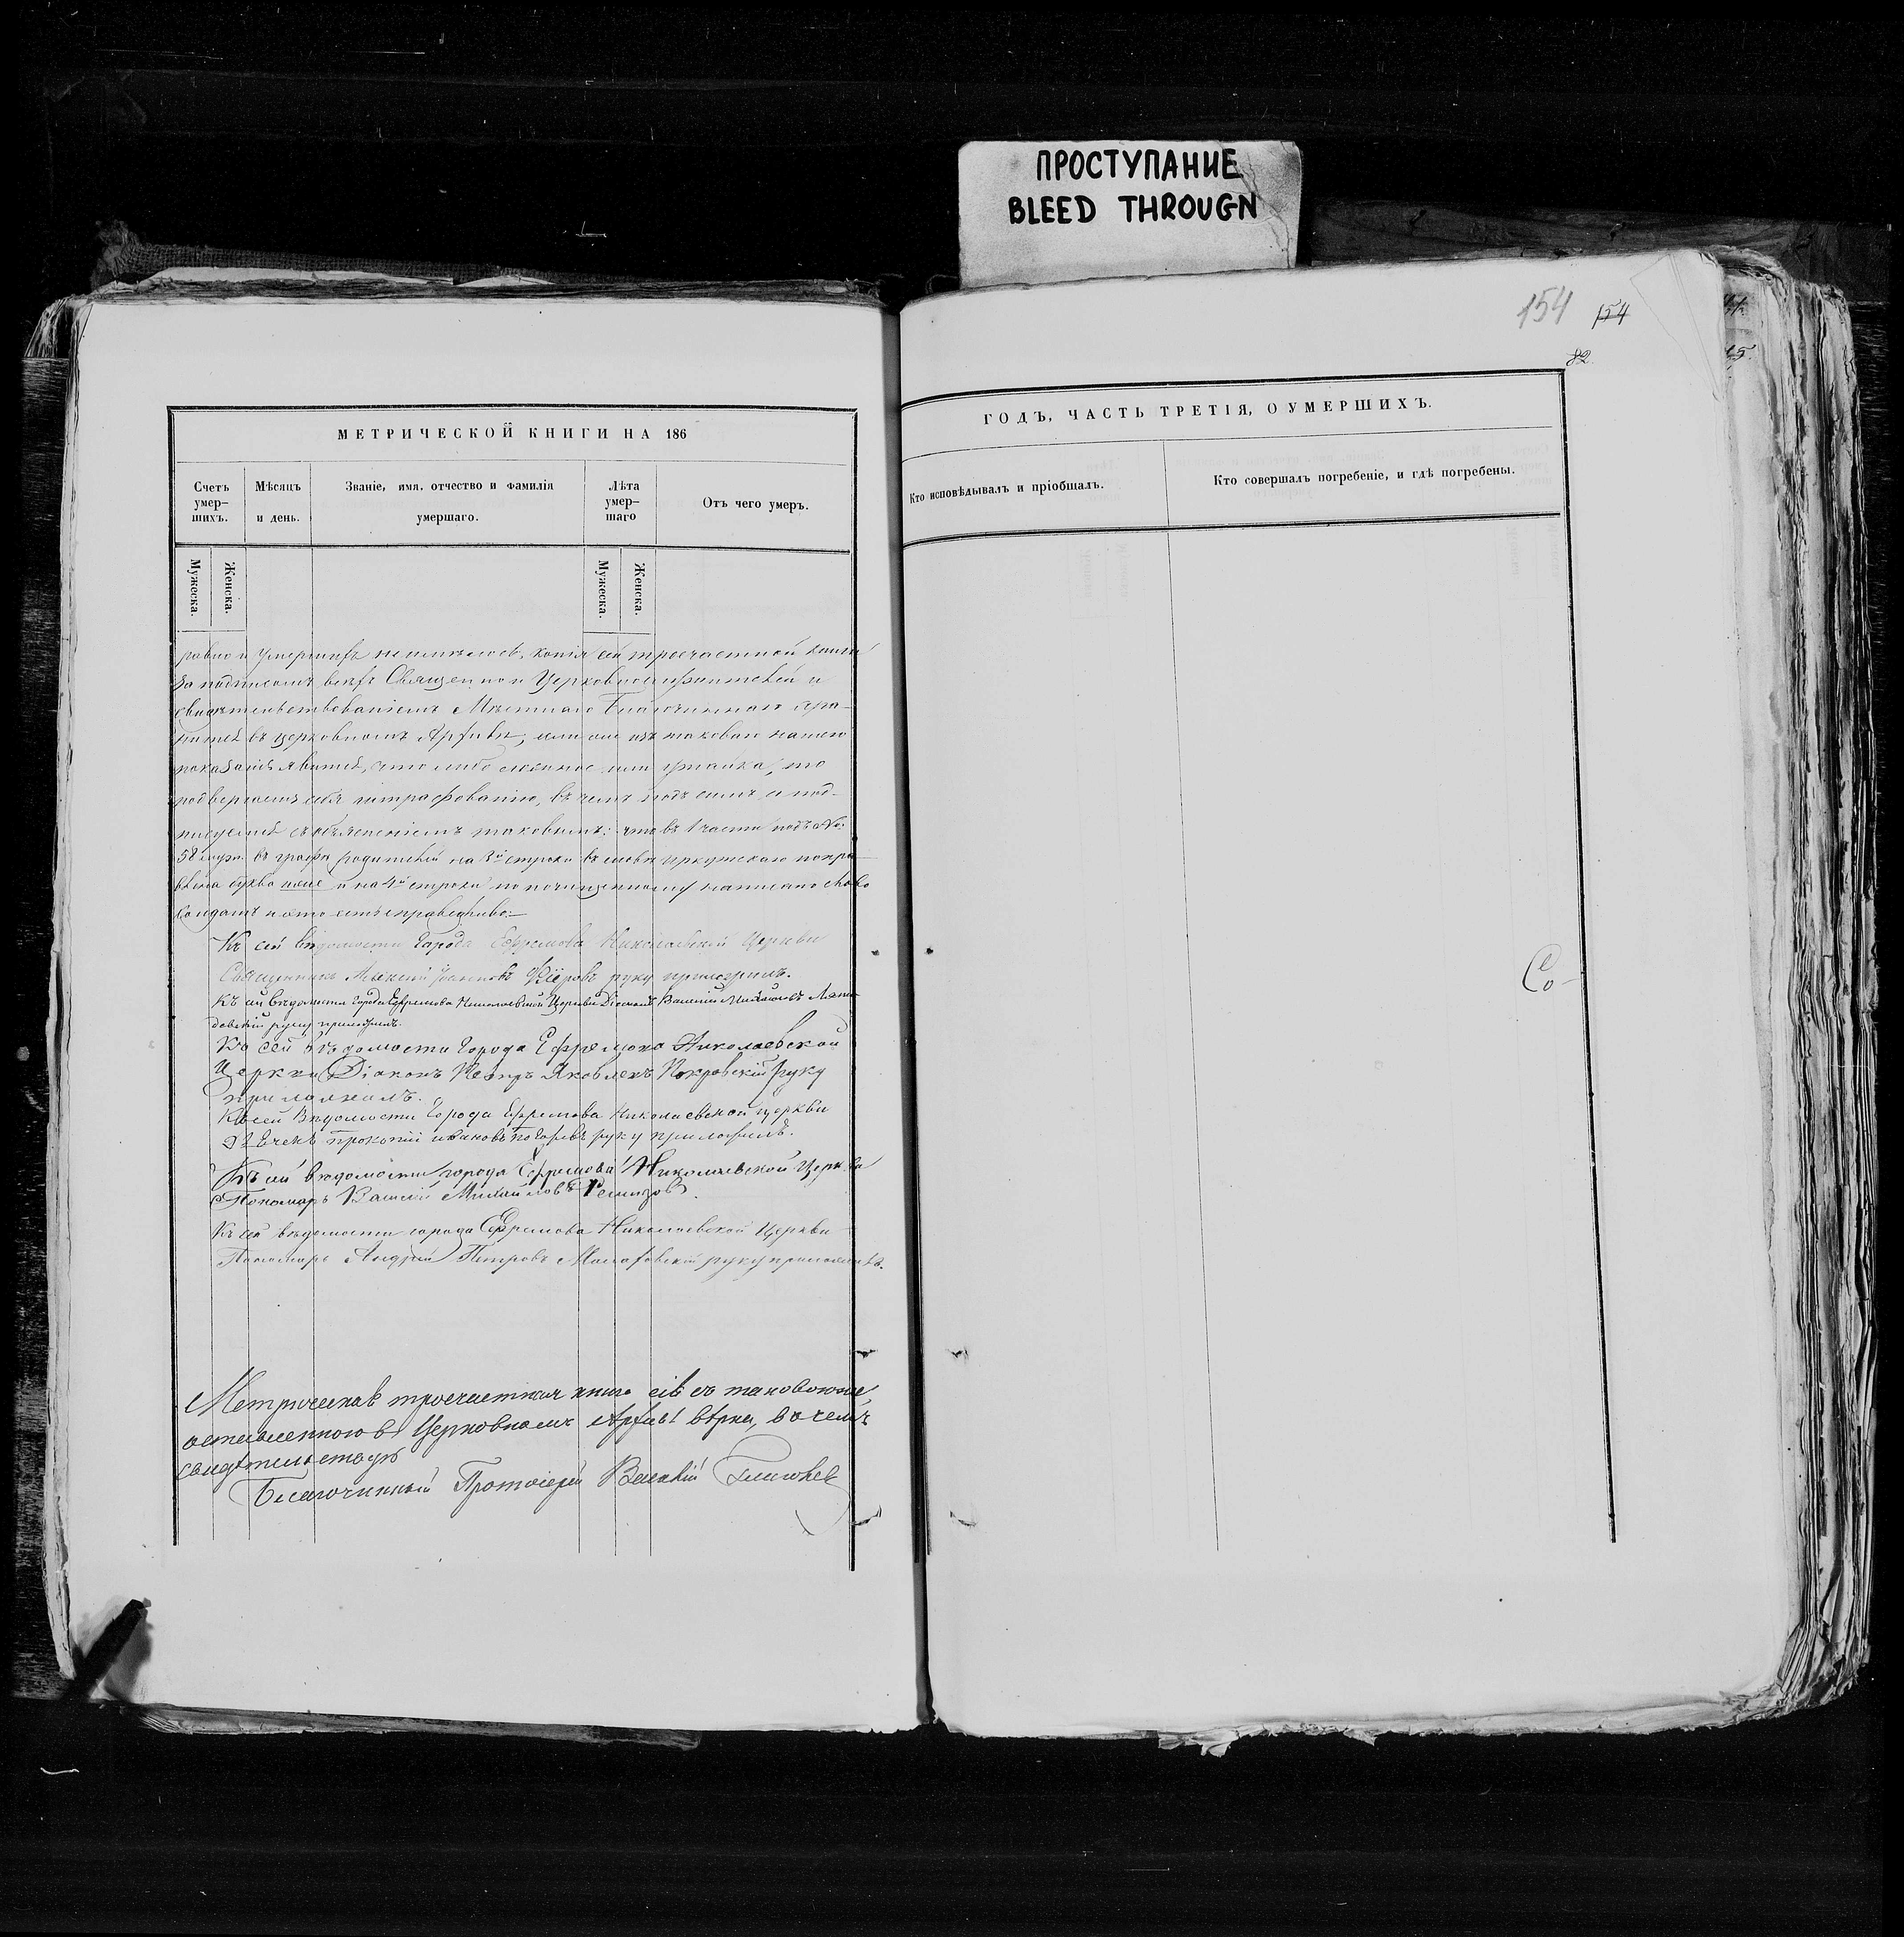 ПРОСТУПАНИЕ
BLEED THROUGN
154 154
82.
МЕТРИЧЕСКОЙ КНИГИ НА 186
Счетъ умер-шихъ.
Мѣсяцъ и день.
Званіе, имя, отчество и фамилія умершаго.
Лѣта умер-шаго
Отъ чего умеръ.
Мужеска.
Женска.
Мужеска.
Женска.
равно и умершихъ неимѣлось, копія сей троечастной книги
За подписомъ всѣхъ Священно и Церковно
свидѣтельствованіемъ Мѣстнаго Благочиннаго хра-
нится въ церковномъ Архивѣ, если же изъ таковаго нашего
показанія явится, что либо ложное или утайка, то
подвергаемъ себя штрафованію, въ чемъ подъ симъ и под-
писуемся съ объясненіемъ таковымъ: что въ 1 части подъ №
58 въ графѣ родителей на 3й строки въ словѣ иркутскаго попра
влена буква и на 4й строки по почищенному написано слово
Солдатъ и это есть справедливо.
Къ сей вѣдомости Города Ефремова Николаевской Церкви
Священникъ Алексій руку приложилъ.
Къ сей вѣдомости Города Ефремова Николаевской Церкви Діаконъ Василій Михайловъ
довскій руку приложилъ.
Ко сей вѣдомости Города Ефремова Николаевской
Церкви Діаконъ Петръ Яковлевъ Покровскій руку
приложилъ.
Ксей Вѣдомости Города Ефремова Николаевской церкви
Дьячекъ прокопій ивановъ руку приложилъ.
Къ сей вѣдомости города Ефремова Николаевской Церкви
Пономарь Василій Михайловъ Ремизовъ.
Къ сей вѣдомости города Ефремова Николаевской Церкви
Пономарь Андрей Петровъ руку приложилъ.
Метрическая троечастная книга сія съ таковою же
оставленною въ Церковномъ Архивѣ вѣрна, въ чемъ
свидѣтельствую
Благочинный Протоіерей Василій
ГОДЪ, ЧАСТЬ ТРЕТІЯ, О УМЕРШИХЪ.
Кто исповѣдывалъ и пріобщалъ.
Кто совершалъ погребеніе, и гдѣ погребены.